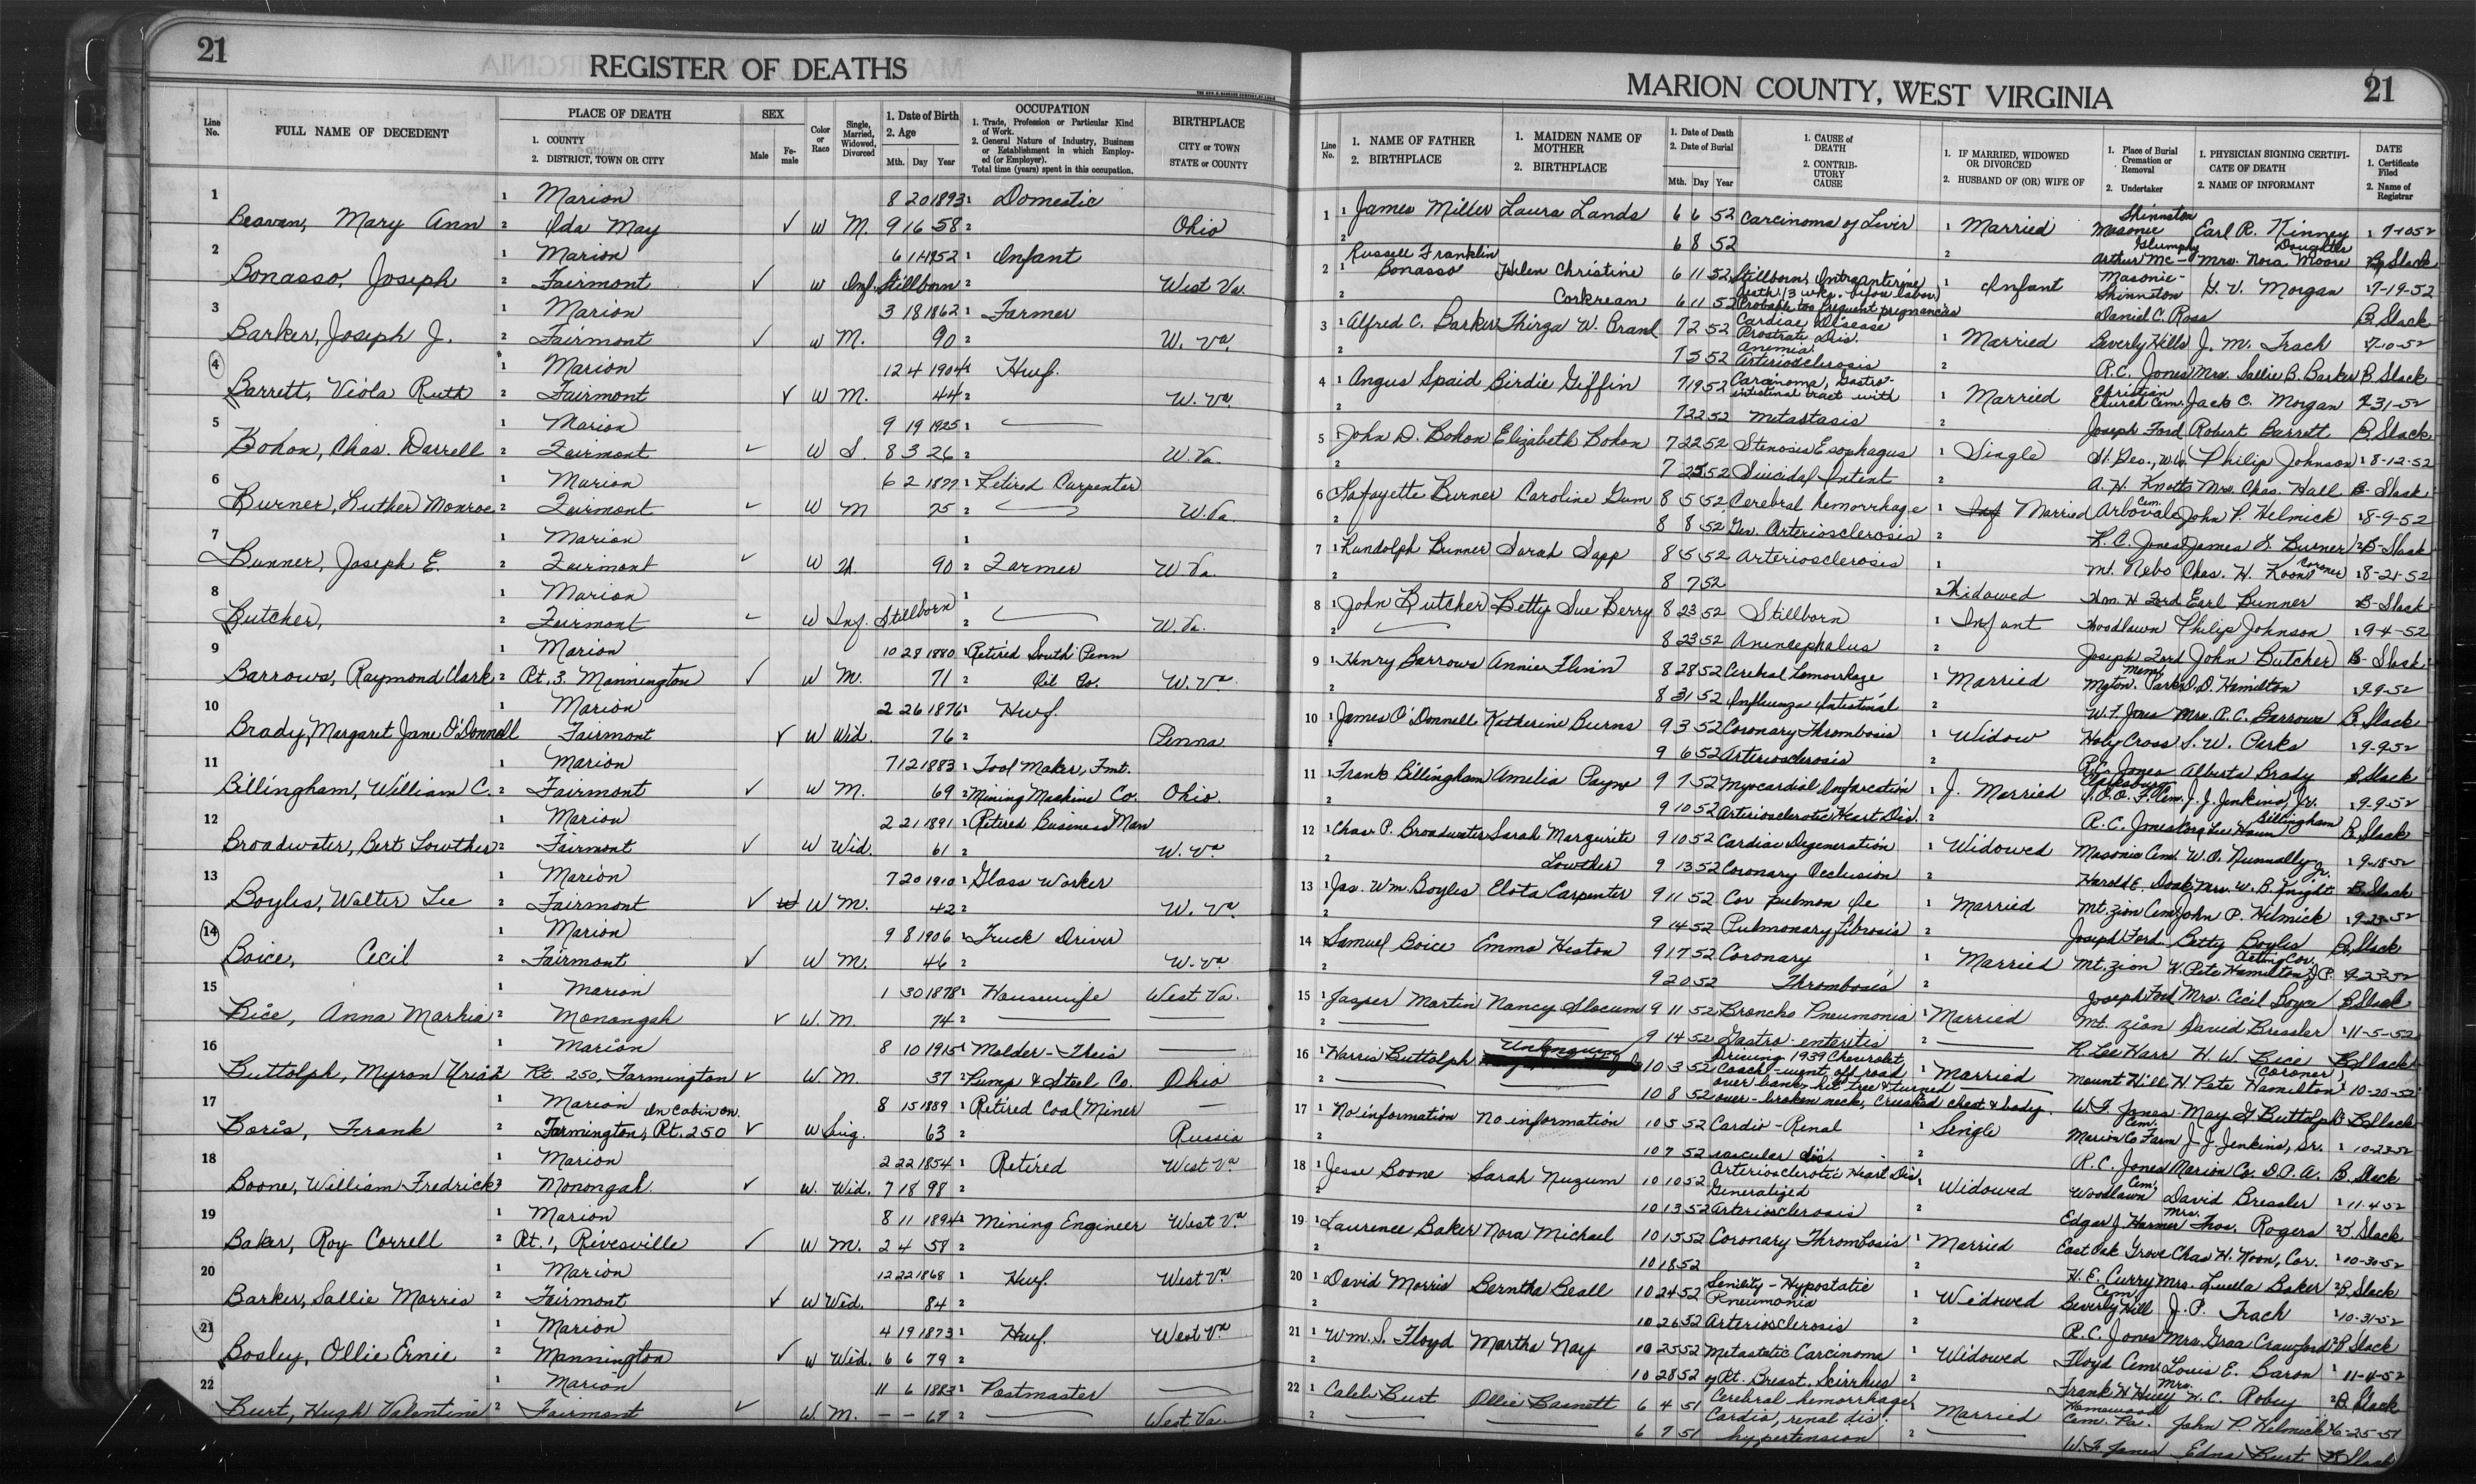 21
REGISTER OF DEATHS
MARION COUNTY, WEST VIRGINIA
21
Line No.
FULL NAME OF DECEDENT
PLACE OF DEATH
1. COUNTY
2. DISTRICT, TOWN OR CITY
SEX
Male
Female
Color or Race
Single, Married, Widowed, Divorced
1. Date of Birth
2. Age
Mth. Day Year
OCCUPATION
1. Trade, Profession or Particular Kind of Work.
2. General Nature of Industry, Business or Establishment in which Employed (or Employer).
Total time (years) spent in this occupation.
BIRTHPLACE
CITY or TOWN
STATE or COUNTY
1 Marion 8 20 1893 1 Domestic
Beavan, Mary Ann 2 Ida May ✓ W M. 9 16 58 2 Ohio
2 1 Marion 6 11 1952 1 Infant
Bonasso, Joseph 2 Fairmont ✓ W Inf. Stillborn 2 West Va.
3 1 Marion 3 18 1862 1 Farmer
Barker, Joseph J. 2 Fairmont ✓ W M. 90 2 W. Va.
4 1 Marion 12 4 1904 1 Hwf.
Barrett, Viola Ruth 2 Fairmont ✓ W M. 44 2 W. Va.
5 1 Marion 9 19 1925 1
Bohon, Chas. Darrell 2 Fairmont ✓ W S. 8 3 26 2 W. Va.
6 1 Marion 6 2 1877 1 Retired Carpenter
Burner, Luther Monroe 2 Fairmont ✓ W M 75 2 W. Va.
7 1 Marion 1
Bunner, Joseph E. 2 Fairmont ✓ W 90 2 Farmer W. Va.
8 1 Marion 1
Butcher, 2 Fairmont ✓ W Inf. Stillborn 2 W. Va.
9 1 Marion 10 28 1880 1 Retired South Penn
Barrows, Raymond Clark 2 Rt. 3. Mannington ✓ W M. 71 2 Oil Co. W. Va.
10 1 Marion 2 26 1876 1 Hwf.
Brady, Margaret Jane O'Donnell Fairmont ✓ W Wid. 76 2 Penna
11 1 Marion 7 12 1883 1 Tool Maker, Fmt.
Billingham, William C. 2 Fairmont ✓ W M. 69 2 Mining Machine Co. Ohio.
12 1 Marion 2 21 1891 1 Retired Business Man
Broadwater, Bert Lowther 2 Fairmont ✓ W Wid. 61 2 W. Va.
13 1 Marion 7 20 1910 1 Glass Worker
Boyles, Walter Lee 2 Fairmont ✓ W W M. 42 2 W. Va.
14 1 Marion 9 8 1906 1 Truck Driver
Boice, Cecil 2 Fairmont ✓ W M. 46 2 W. Va.
15 1 Marion 1 30 1878 1 Housewife West Va.
Bice, Anna Markia 2 Monongah ✓ W. M. 74 2
16 1 Marion 8 10 1915 1 Molder - Theis
Buttolph, Myron Uriah 2 Rt. 250, Farmington ✓ W. M. 37 2 Pump & Steel Co. Ohio
17 1 Marion In Cabin on 8 15 1889 1 Retired Coal Miner
Boris, Frank 2 Farmington, Rt. 250 ✓ W Sig. 63 2 Russia
18 1 Marion 2 22 1854 1 Retired West Va.
Boone, William Fredrick 2 Monongah. ✓ W. Wid. 7 18 98 2
19 1 Marion 8 11 1894 1 Mining Engineer West Va.
Baker, Roy Correll 2 Rt. 1, Rivesville ✓ W M. 2 4 58 2
20 1 Marion 12 22 1868 1 Hwf. West Va.
Barker, Sallie Morris 2 Fairmont ✓ W Wid. 84 2
21 1 Marion 4 19 1873 1 Hwf. West Va.
Bosley, Ollie Ernie 2 Mannington ✓ W Wid. 6 6 79 2
22 1 Marion 11 6 1883 1 Postmaster
Burt, Hugh Valentine 2 Fairmont ✓ W. M. - - 67 2 West Va.
Line No.
1. NAME OF FATHER
2. BIRTHPLACE
1. MAIDEN NAME OF MOTHER
2. BIRTHPLACE
1. Date of Death
2. Date of Burial
Mth. Day Year
1. CAUSE of DEATH
2. CONTRIBUTORY CAUSE
1. IF MARRIED, WIDOWED OR DIVORCED
2. HUSBAND OF (OR) WIFE OF
1. Place of Burial Cremation or Removal
2. Undertaker
1. PHYSICIAN SIGNING CERTIFICATE OF DEATH
2. NAME OF INFORMANT
DATE
1. Certificate Filed
2. Name of Registrar
1 1 James Miller Laura Lands 6 6 52 Carcinoma of Liver 1 Married Shinnston Masonic Earl R. Kinney 1 7-10-52
2 6 8 52 2 Arthur McGlumphy Daughter Mrs. Nora Moore B. Slack
2 1 Russell Franklin Bonasso Helen Christine 6 11 52 Stillborn, Intra Anterine 1 Infant Masonic - Shinnston H. V. Morgan 1 7-19-52
2 Corkrean 6 11 52 death (3 wks. before labor) Probable too frequent pregnancies Daniel C. Ross B. Slack
3 1 Alfred C. Barker Thirza W. Brand 7 2 52 Cardiac Disease Prostrate Dis. 1 Married Beverly Hills J. M. Trach 7-10-52
2 7 5 52 Anemia. Arteriosclerosis 2 R.C. Jones Mrs. Sallie B. Barker B. Slack
4 1 Angus Spaid Birdie Giffin 7 19 52 Carcinoma, Gastro-intestinal tract with 1 Married Christian Church Cem. Jack C. Morgan 7-31-52
2 7 22 52 metastasis 2 Joseph Ford Robert Barrett B. Slack
5 1 John D. Bohon Elizabeth Bohon 7 22 52 Stenosis Esophagus 1 Single St. Geo., W.Va. Philip Johnson 1 8-12-52
2 7 25 52 Suicidal Intent 2 A. H. Knotts Mrs. Chas. Hall B. Slack
6 1 Lafayette Burner Caroline Gum 8 5 52 Cerebral hemorrhage 1 Inf Married Arbovale Cem. John P. Helmick 1 8-9-52
2 8 8 52 Gen. Arteriosclerosis 2 R. C. Jones James L. Burner 2 B. Slack
7 1 Randolph Bunner Sarah Sapp 8 5 52 Arteriosclerosis 1 Mt. Nebo Chas. H. Koon Coroner 1 8-21-52
2 8 7 52 2 Widowed Wm. H Ford Earl Bunner B. Slack
8 1 John Butcher Betty Sue Berry 8 23 52 Stillborn 1 Infant Woodlawn Philip Johnson 1 9-4-52
2 8 23 52 Anencephalus 2 Joseph Ford John Butcher B. Slack
9 1 Henry Barrows Annie Flinn 8 28 52 Cerebral Hemorrhage 1 Married Mgton. Mem. Park D. D. Hamilton 1 9-9-52
2 8 31 52 Influenza Intestinal 2 W. F. Jones Mrs. R. C. Barrows B. Slack
10 1 James O'Donnell Katherine Burns 9 3 52 Coronary Thrombosis 1 Widow Holy Cross S. W. Parks 1 9-9-52
2 9 6 52 Arteriosclerosis 2 R.C. Jones Alberta Brady B. Slack
11 1 Frank Billingham Amelia Payne 9 7 52 Myocardial Infarction 1 J. Married I.O.O.F. Cem. J. J. Jenkins, Jr. 1 9-9-52
2 9 10 52 Arteriosclerotic Heart Dis. 2 R. C. Jones Billingham B. Slack
12 1 Chas. P. Broadwater Sarah Margurite 9 10 52 Cardiac Degeneration 1 Widowed Masonic Cem. W. O. Nunnally Jr. 1 9-18-52
2 Lowther 9 13 52 Coronary Occlusion 2 Harold E. Doak Mrs. W. B. Knight B. Slack
13 1 Jas. Wm. Boyles Elota Carpenter 9 11 52 Cor pulmonale 1 Married Mt. Zion Cem. John P. Helmick 1 9-23-52
2 9 14 52 Pulmonary fibrosis 2 Joseph Ford Betty Boyles B. Slack
14 1 Samuel Boice Emma Heston 9 17 52 Coronary 1 Married Mt. Zion H. Pete Hamilton J.P. Acting Cor. 9-23-52
2 9 20 52 Thrombosis 2 Joseph Ford Mrs. Cecil Boyce B. Slack
15 1 Jasper Martin Nancy Slocum 9 11 52 Broncho Pneumonia 1 Married Mt. Zion David Bressler 1 11-5-52
2 9 14 52 Gastro-enteritis 2 R. Lee Harr H. W. Bice B. Slack
16 1 Harris Buttolph Unknown 10 3 52 Driving 1939 Chevrolet Coach - went off road 1 Married Mount Hill H Pete Hamilton (Coroner) 1 10-20-52
2 10 8 52 over bank - hit tree & turned over - broken neck, crushed chest & body. W. F. Jones May G. Buttolph B. Slack
17 1 No information No information 10 5 52 Cardio-Renal 1 Single Marion Co Farm Cem. J. J. Jenkins, Sr. 1 10-23-52
2 10 7 52 vascular dis. 2 R. C. Jones Marion Co. D.P.A. B. Slack
18 1 Jesse Boone Sarah Nuzum 10 10 52 Arteriosclerotic Heart Dis. Generalized 1 Widowed Woodlawn Cem. David Bressler 1 11-4-52
2 10 13 52 arteriosclerosis 2 Edgar J. Harmer Mrs. Thos. Rogers B. Slack
19 1 Laurence Baker Nora Michael 10 15 52 Coronary Thrombosis 1 Married East Oak Grove Chas H. Koon, Cor. 1 10-30-52
2 10 18 52 2 H. E. Curry Mrs. Luella Baker B. Slack
20 1 David Morris Berntha Beall 10 24 52 Senility - Hypostatic Pneumonia 1 Widowed Beverly Hill Cem. J. P. Trach 1 10-31-52
2 10 26 52 Arteriosclerosis 2 R. C. Jones Mrs. Graa Crawford B. Slack
21 1 Wm. S. Floyd Martha Nay 10 25 52 Metastatic Carcinoma 1 Widowed Floyd Cem. Louis E. Baron 1 11-4-52
2 10 28 52 of Rt. Breast, Scirrhus 2 Frank H Huey Mrs. H. C. Robey 2 B. Slack
22 1 Caleb Burt Ollie Basnett 6 4 51 Cerebral hemorrhage Cardio, renal dis. 1 Married Homewood Cem. Pa. John P. Helmick 6-25-51
2 6 7 51 hypertension 2 W. F. Jones Edna Burt B Slack